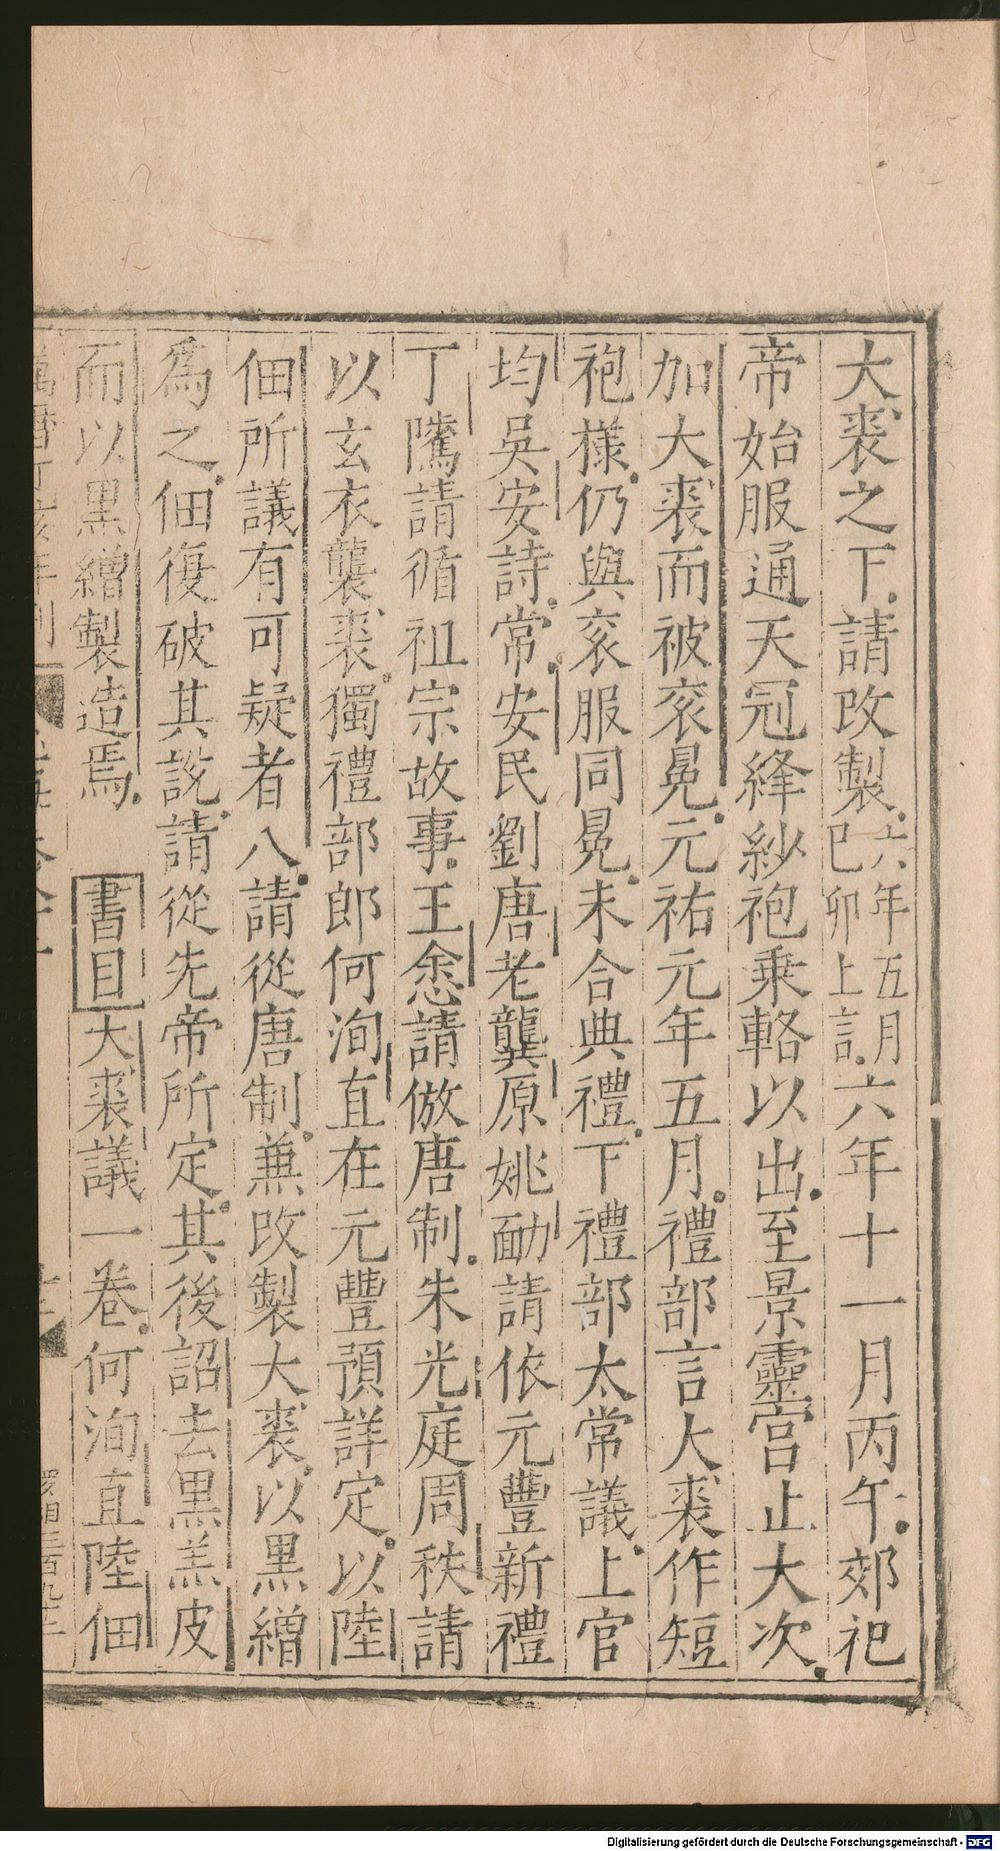 大裘之下請改製六年五月己卯上言六年十一月丙午郊祀
帝始服通天冠絳紗袍乗輅以出至景靈宫止大次
加大裘而被衮冕元祐元年五月禮部言大裘作短
袍樣仍與衮服同冕未合典禮下禮部太常議上官
均吳安詩常安民劉唐老龔原姚勔請依元豐新禮
丁隲請循祖宗故事王悆請倣唐制朱光庭周秩請
以玄衣襲裘獨禮部郎何洵直在元豐預詳定以陸
佃所議有可疑者八請從唐制兼改製大裘以黒繒
爲之佃復破其説請從先帝所定其後詔去黒羔皮
而以黒繒製造焉 書目大裘議一卷何洵直陸佃
Digitalisierung gefördert durch die Deutsche Forschungsgemeinschaft - DFG